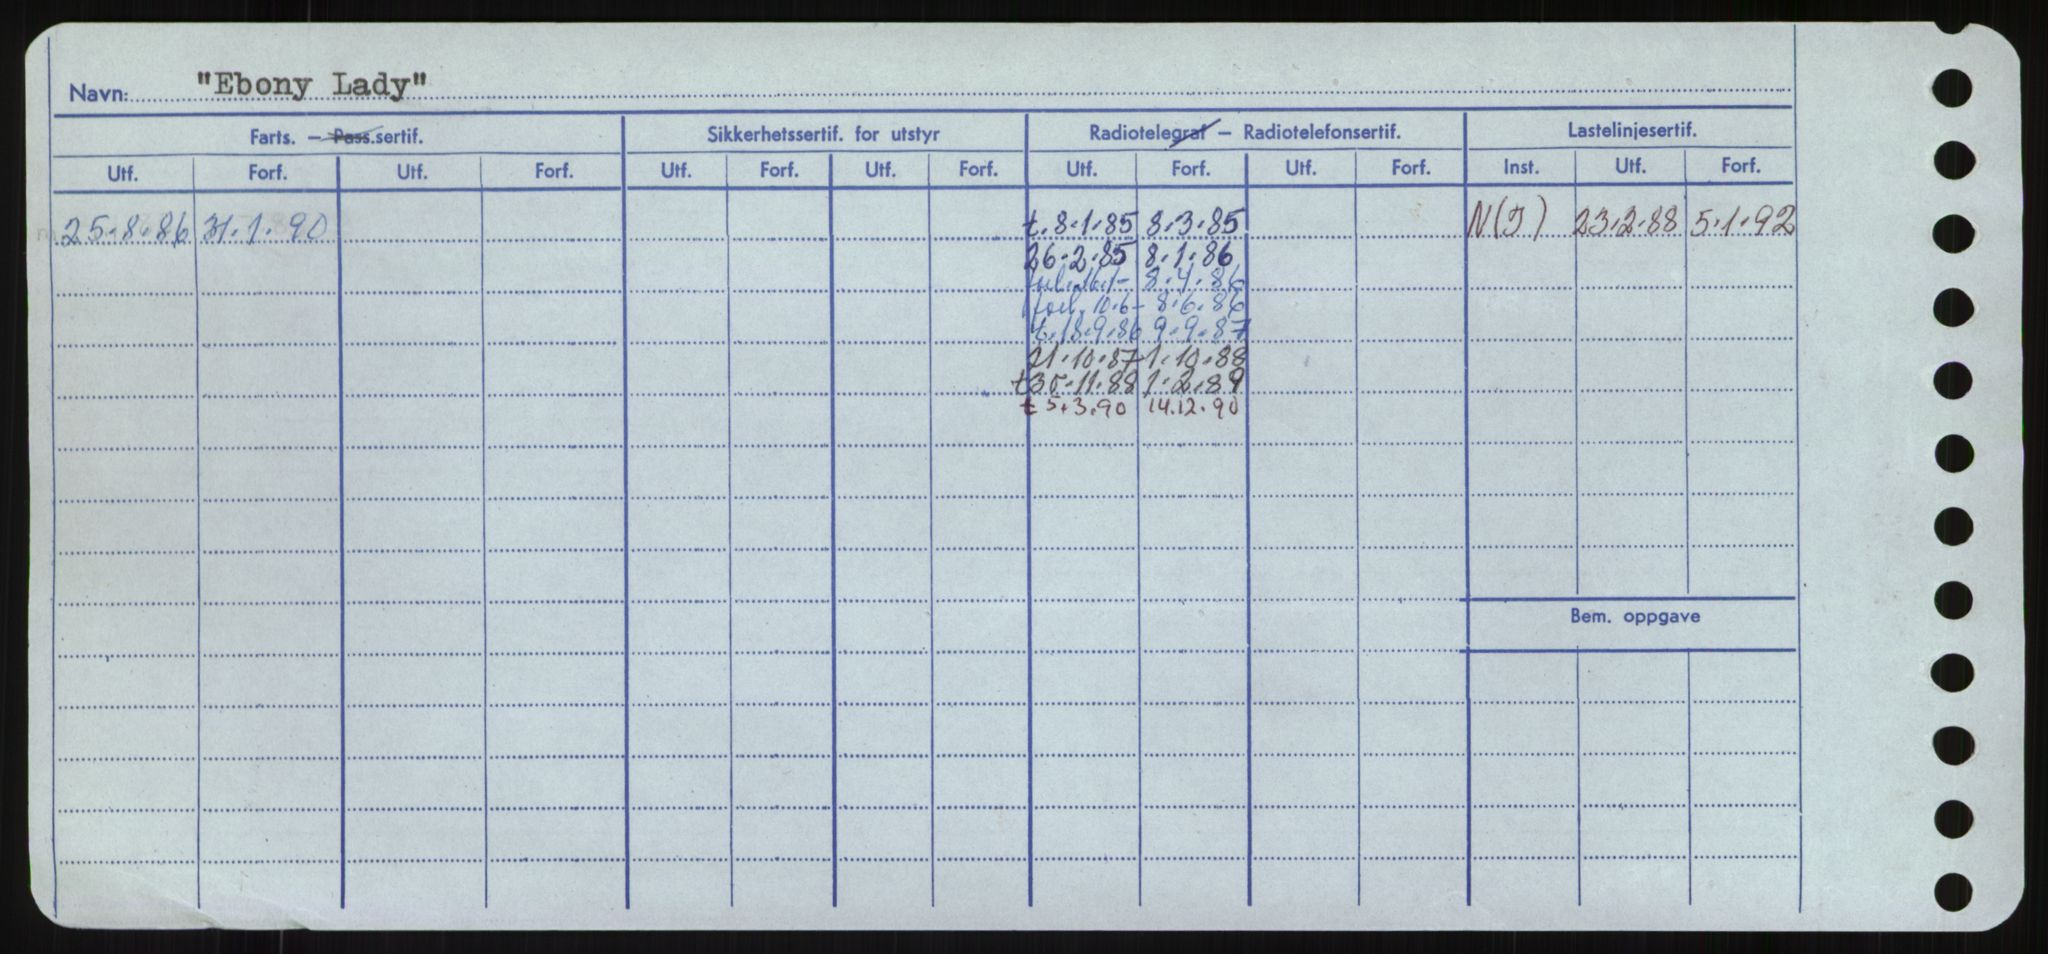 Navn: "Ebony Lady"
Farts. — Pass.sertif. Sikkerhetssertif. for utstyr Radiotelegraf — Radiotelefonsertif. Lastelinjesertif.
Utf. Forf. Utf. Forf. Utf. Forf. Utf. Forf. Utf. Forf. Utf. Forf. Inst. Utf. Forf.
25.8.86 31.1.90 t. 8.1.85 8.3.85 N(I) 23.2.88 5.1.92
26.2.85 8.1.86
8.4.86
10.6- 8.6.86
t. 18.9.86 9.9.87
21.10.87 1.10.88
t 30.11.88 1.2.89
t 5.3.90 14.12.90
Bem. oppgave